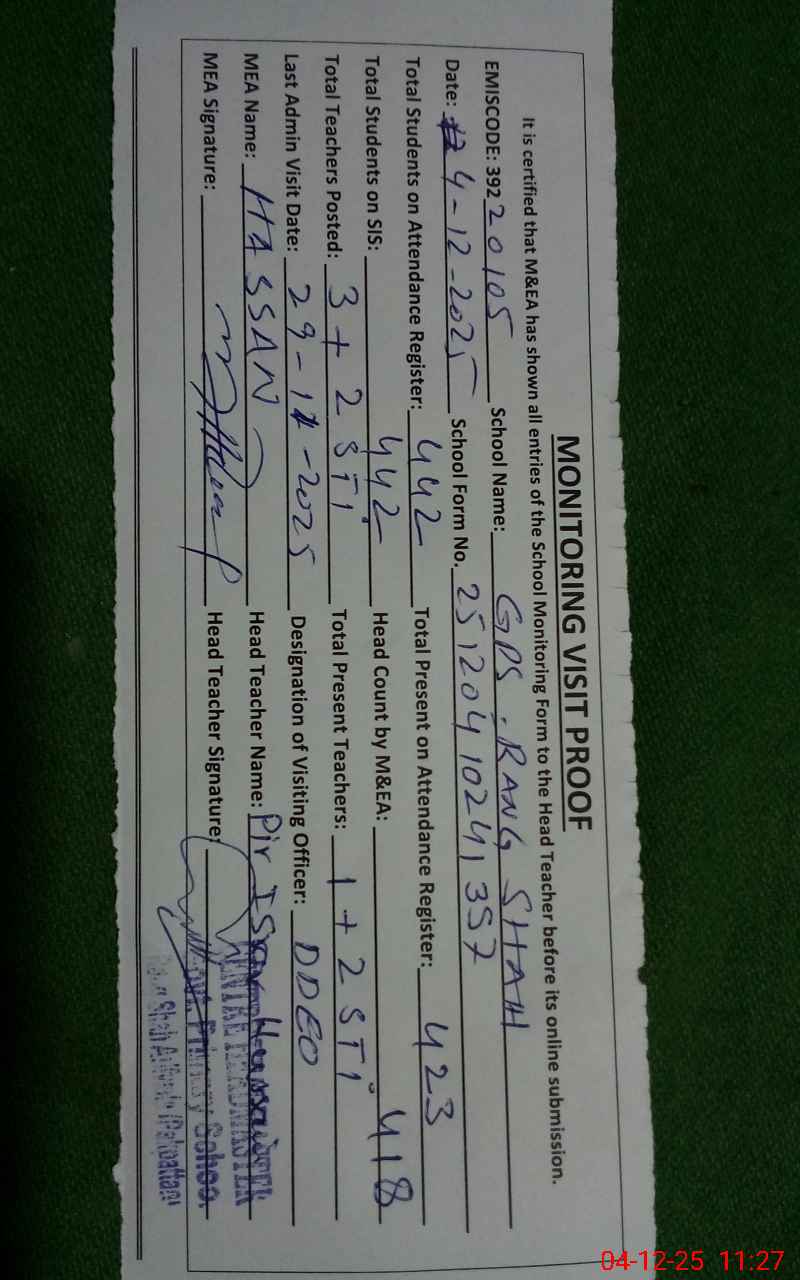 MONITORING VISIT PROOF
It is certified that M&EA has shown all entries of the School Monitoring Form to the Head Teacher before its online submission.
EMISCODE: 39220105 School Name: GPS. RANG SHAH
Date: 4-12-2025 School Form No. 251204102413S7
Total Students on Attendance Register: 442 Total Present on Attendance Register: 423
Total Students on SIS: 442 Head Count by M&EA: 418
Total Teachers Posted: 3+2 STI Total Present Teachers: 1+2 STI
Last Admin Visit Date: 29-11-2025 Designation of Visiting Officer: DDEO
MEA Name: HASSAN Head Teacher Name: Pir
MEA Signature: Head Teacher Signature:
CENTRE HEADMASTER
Govt. Primary School
Shah
04-12-25 11:27